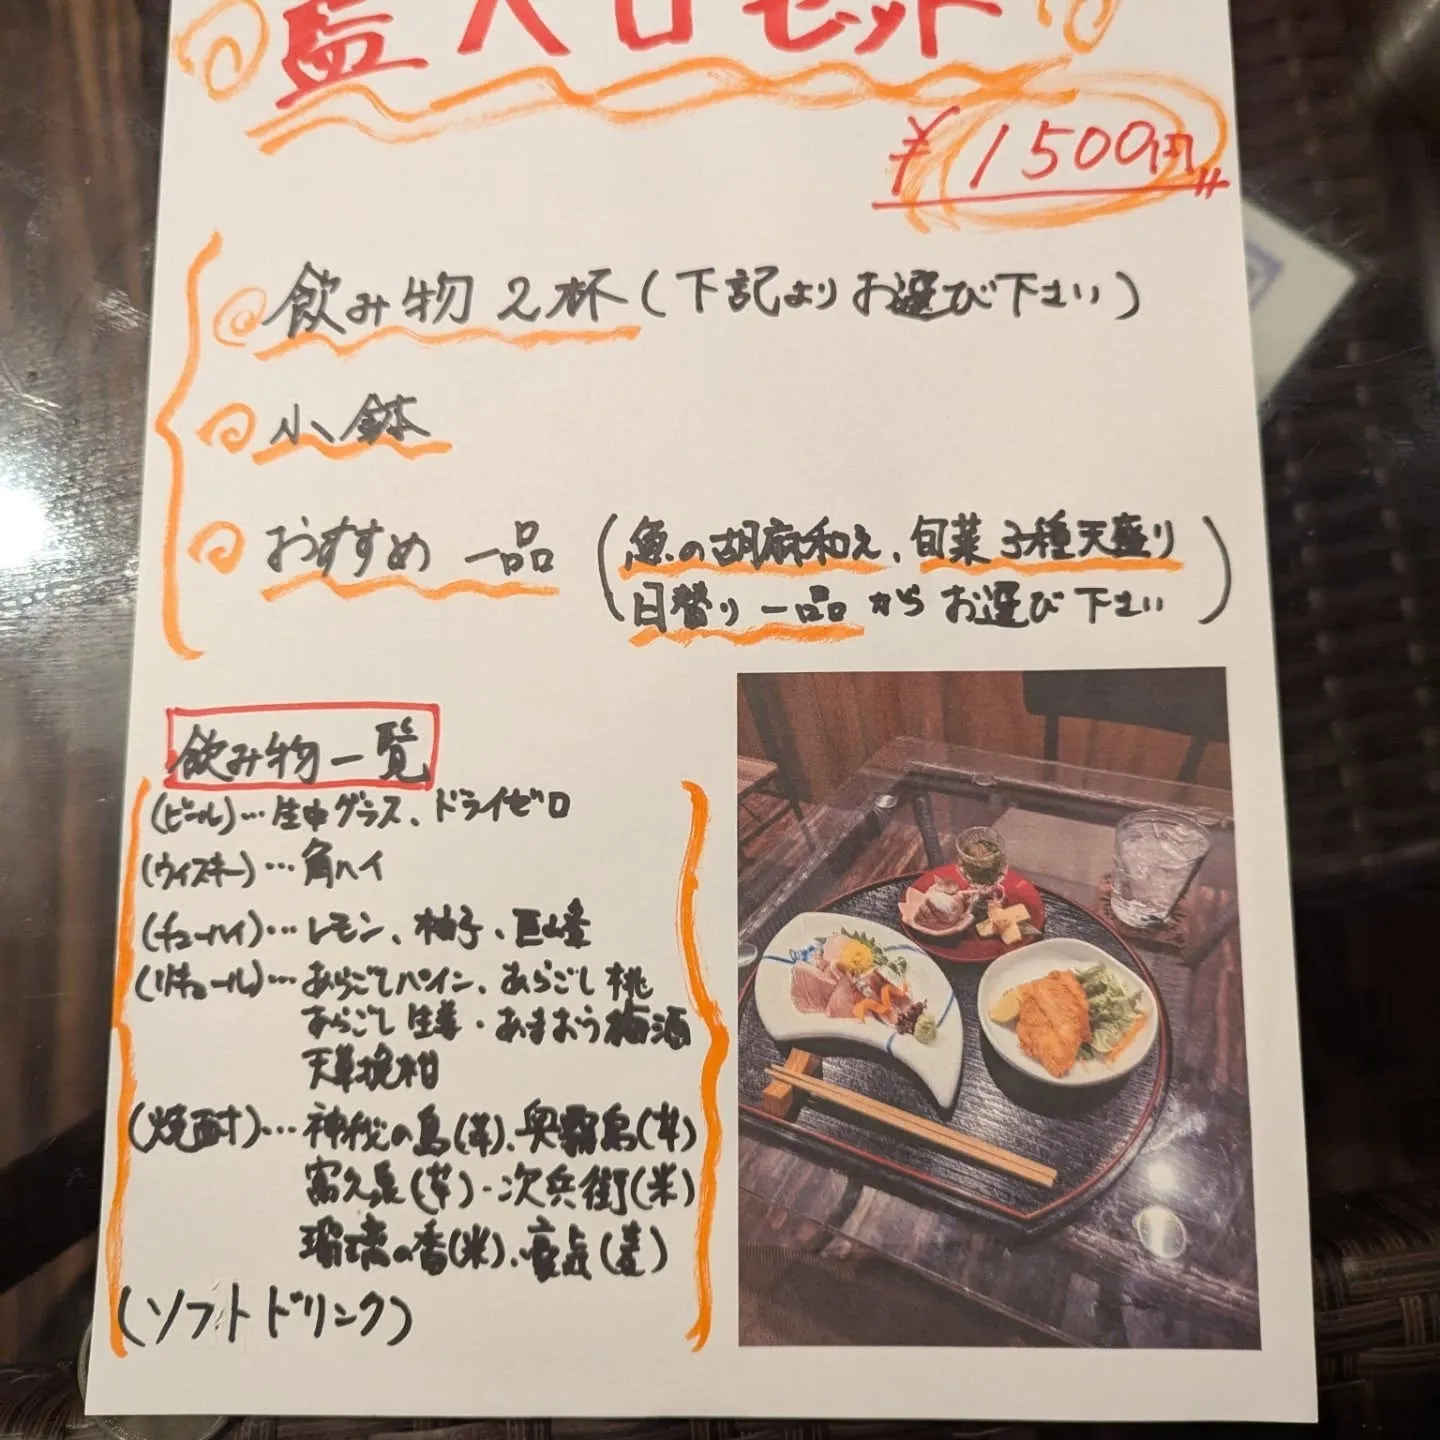 藍入口セット
¥1500円
飲み物2杯(下記よりお選び下さい)
小鉢
おすすめ一品(魚の胡麻和え、旬菜3種天盛り
日替り一品からお選び下さい)
飲み物一覧
(ビール)…生中グラス、ドライゼロ
(ウィスキー)…角ハイ
(チューハイ)…レモン、柚子、巨峰
(リキュール)…あらごしパイン、あらごし桃
あらごし生姜・あまおう梅酒
天草晩柑
(焼酎)…神秘の島(芋)、奥霧島(芋)
富久長(芋)・次兵街(米)
瑠璃の香(米)、(麦)
(ソフトドリンク)